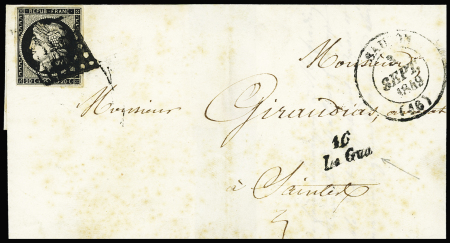 REPUB. FRANC.
SEPT.
1849
(16)
Monsieur
Monsieur Giraudias
16
Le Gua
à Saintes